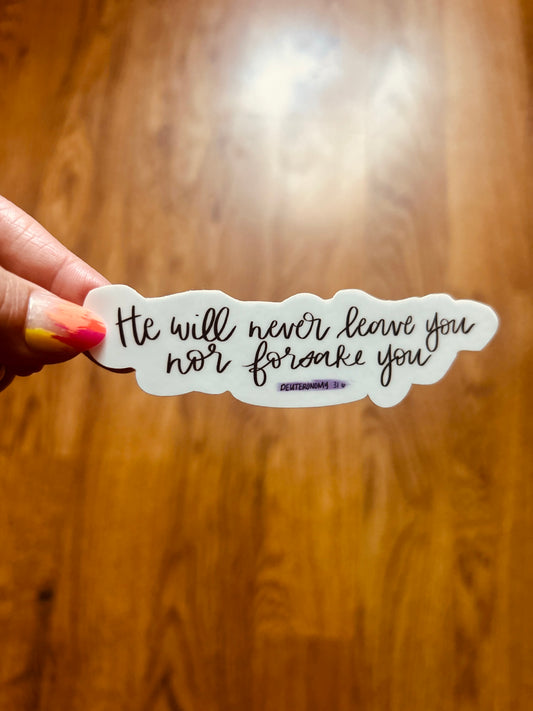 He will never leave you
nor forsake you
DEUTERONOMY 31:6